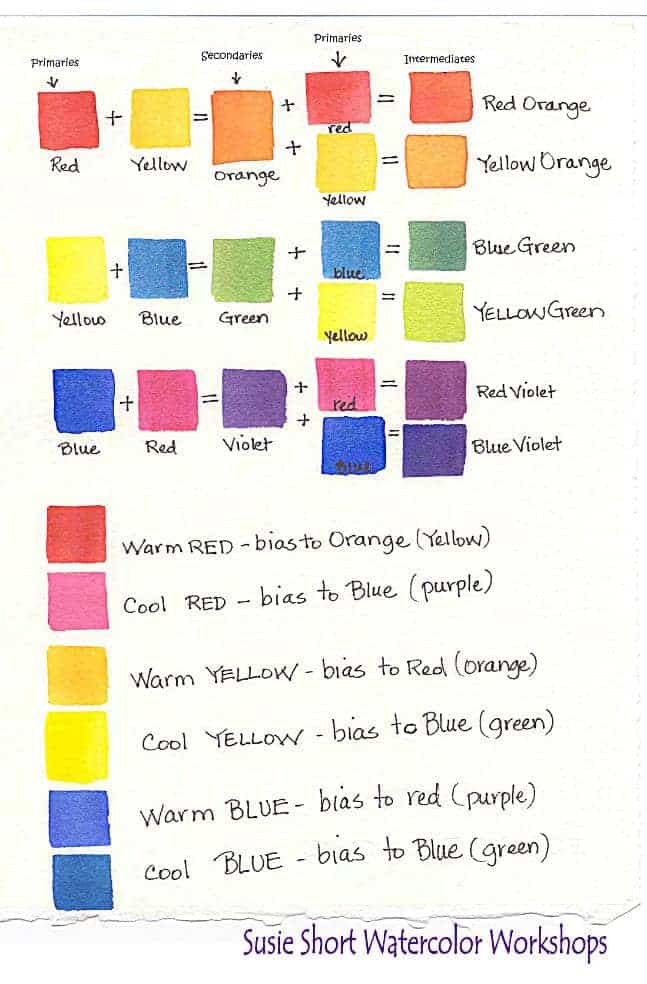 Primaries
Secondaries
Primaries
Intermediates
Red + Yellow = Orange + red = Red Orange
+ Yellow = Yellow Orange
Yellow + Blue = Green + blue = Blue Green
+ Yellow = YELLOW Green
Blue + Red = Violet + red = Red Violet
+ Blue = Blue Violet
Warm RED - bias to Orange (Yellow)
Cool RED - bias to Blue (purple)
Warm YELLOW - bias to Red (orange)
Cool YELLOW - bias to Blue (green)
Warm BLUE - bias to red (purple)
Cool BLUE - bias to Blue (green)
Susie Short Watercolor Workshops